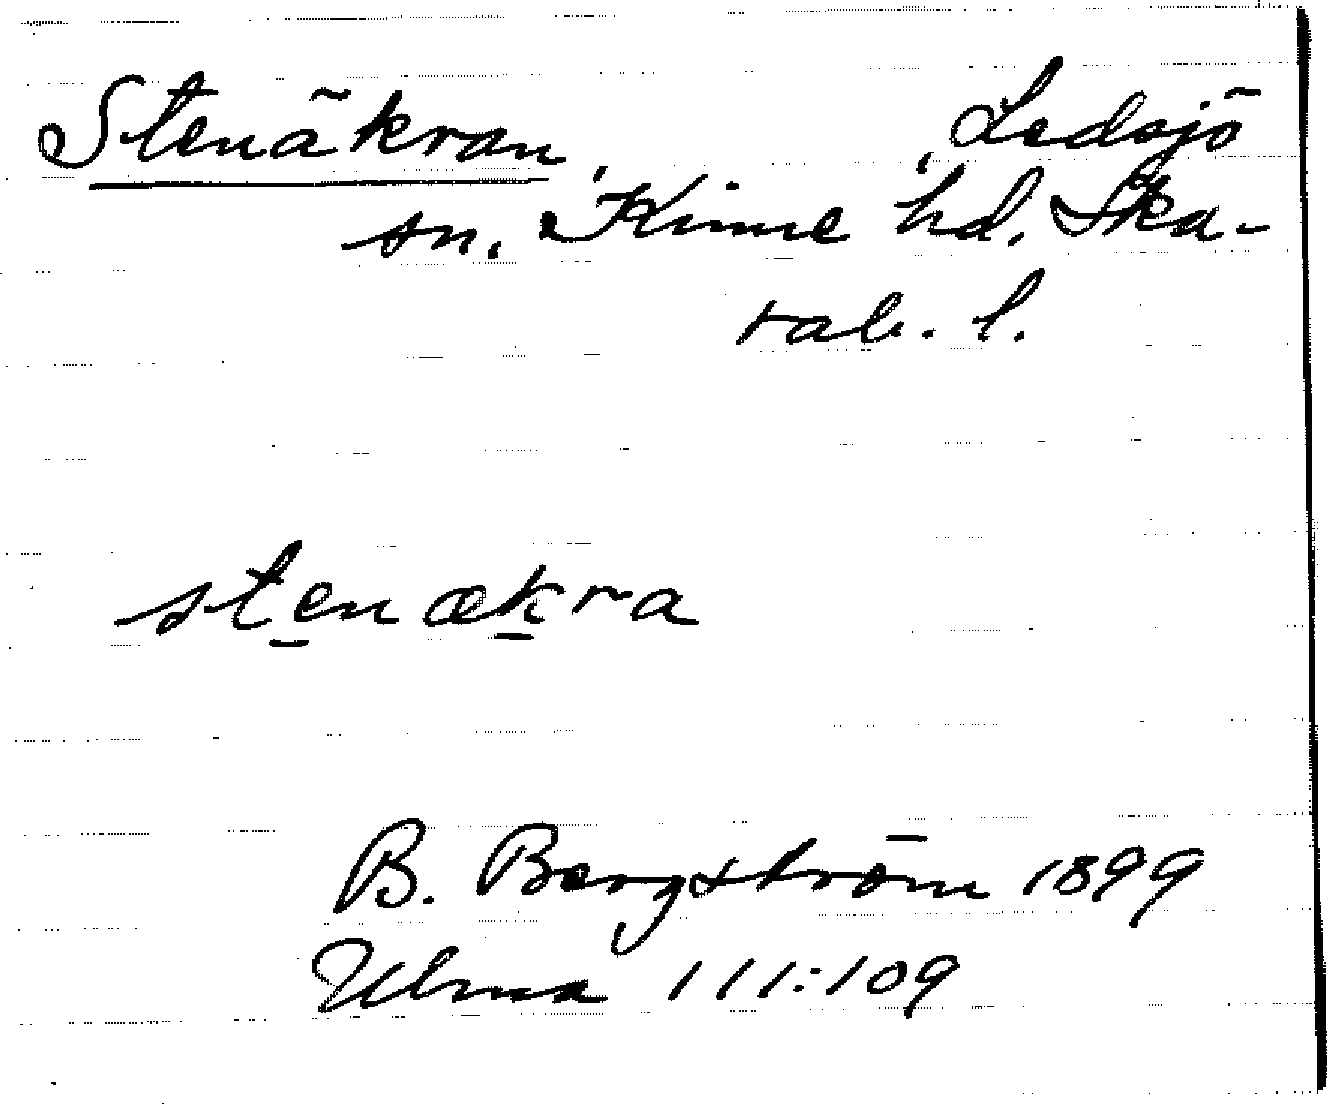 Stenäkran, Ledsjö
sn. Kinne hd. Ska-
rab. l.
stenækra
B. Bergström 1899
Ulma 111:109